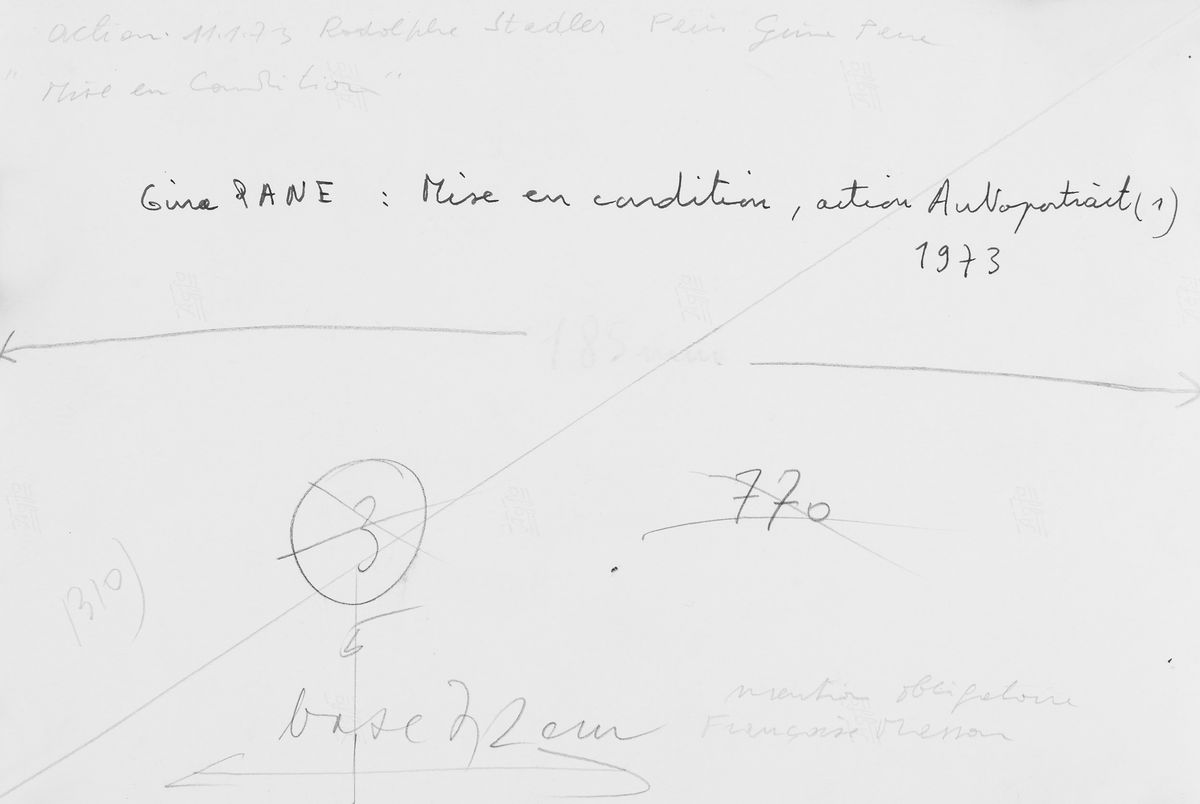 action 11.1.73 Rodolphe Stadler Paris Gina Pane
"Mise en Condition"
Gina PANE : Mise en condition, action Autoportrait(1)
1973
185mm
3
770
1310)
base 7,2 cm
mention obligatoire
Françoise Masson